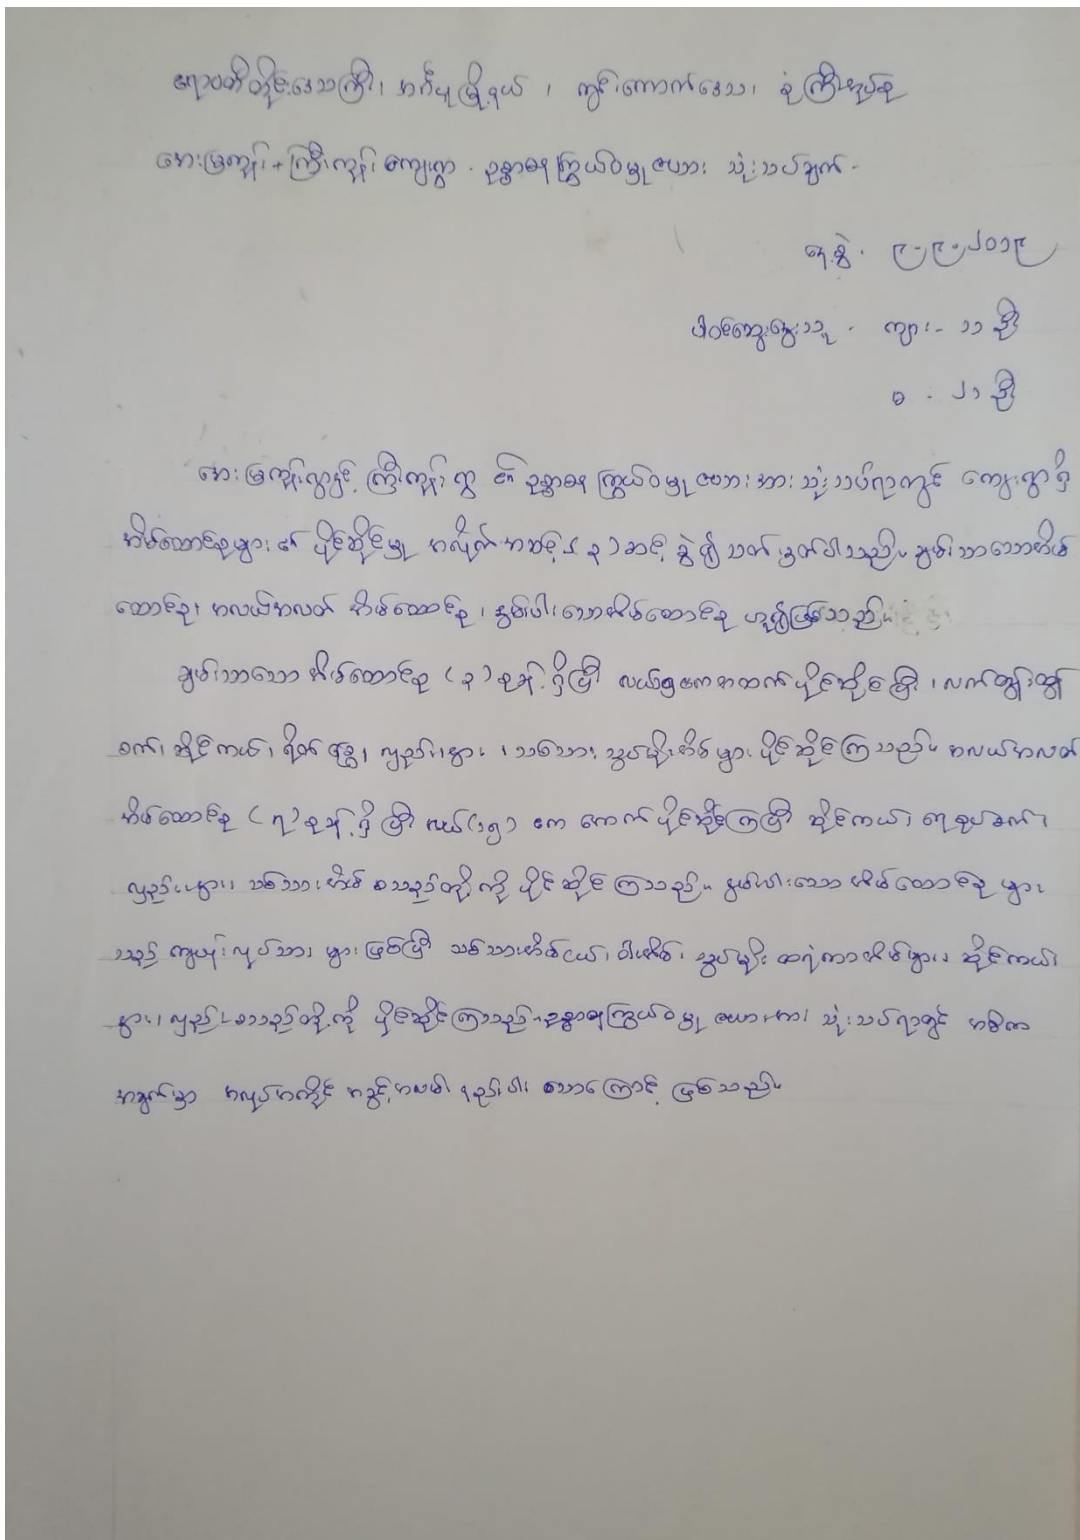 ဧရာဝတီတိုင်းဒေသကြီး၊ အင်္ဂပူမြို့နယ် ၊ ကွင်းကောက်ဒေသ၊ ခုံကြီးအုပ်စု
အေးမြကုန်း + ကြီးကုန်း ကျေးရွာ - ဥစ္စာဓန ကြွယ်ဝမှုဇယား သုံးသပ်ချက် -
နေ့စွဲ - ၉-၉-၂၀၁၉
ပါဝင်ဆွေးနွေးသူ - ကျား - ၁၁ ဦး
မ - ၂၁ ဦး
အေးမြကုန်းရွာနှင့် ကြီးကုန်း ရွာ ၏ ဥစ္စာဓန ကြွယ်ဝမှု ဇယား အား သုံးသပ်ရာတွင် ကျေးရွာရှိ
အိမ်ထောင်စုများ ၏ ပိုင်ဆိုင်မှု အလိုက် အဆင့် ( ၃ ) ဆင့် ခွဲ၍ သတ်မှတ်ပါသည်။ ချမ်းသာသောအိမ်
ထောင်စု၊ အလယ်အလတ် အိမ်ထောင်စု ၊ နွမ်းပါးသောအိမ်ထောင်စု ဟူ၍ဖြစ်သည်။
ချမ်းသာသော အိမ်ထောင်စု ( ၃ ) စုခန့် ရှိပြီး လယ် ဧကအထက် ပိုင်ဆိုင်ပြီး ၊ လက်တွန်းထွန်
စက်၊ ဆိုင်ကယ်၊ လှည်း၊ နွား ၊ သစ်သား သွပ်မိုးအိမ် များ ပိုင်ဆိုင်ကြသည်။ အလယ်အလတ်
အိမ်ထောင်စု ( ၇ ) စုခန့် ရှိပြီး လယ်(၁၅) ဧက အောက် ပိုင်ဆိုင်ကြပြီး ဆိုင်ကယ်၊ ရေစုပ်စက်၊
လှည်း၊ နွား၊ သစ်သားအိမ် စသည်တို့ကို ပိုင်ဆိုင်ကြသည်။ နွမ်းပါးသော အိမ်ထောင်စု များ
သည် ကျပန်းလုပ်သား များဖြစ်ပြီး သစ်သားအိမ်ငယ်၊ ဝါးအိမ်၊ သွပ်မိုး ထရံကာအိမ်များ၊ ဆိုင်ကယ်၊
နွား၊ လှည်း စသည်တို့ကို ပိုင်ဆိုင်ကြသည်။ ဥစ္စာဓနကြွယ်ဝမှု ဇယားအား သုံးသပ်ရာတွင် အဓိက
အချက်မှာ အလုပ်အကိုင် အခွင့်အလမ်း နည်းပါး သောကြောင့် ဖြစ်သည်။